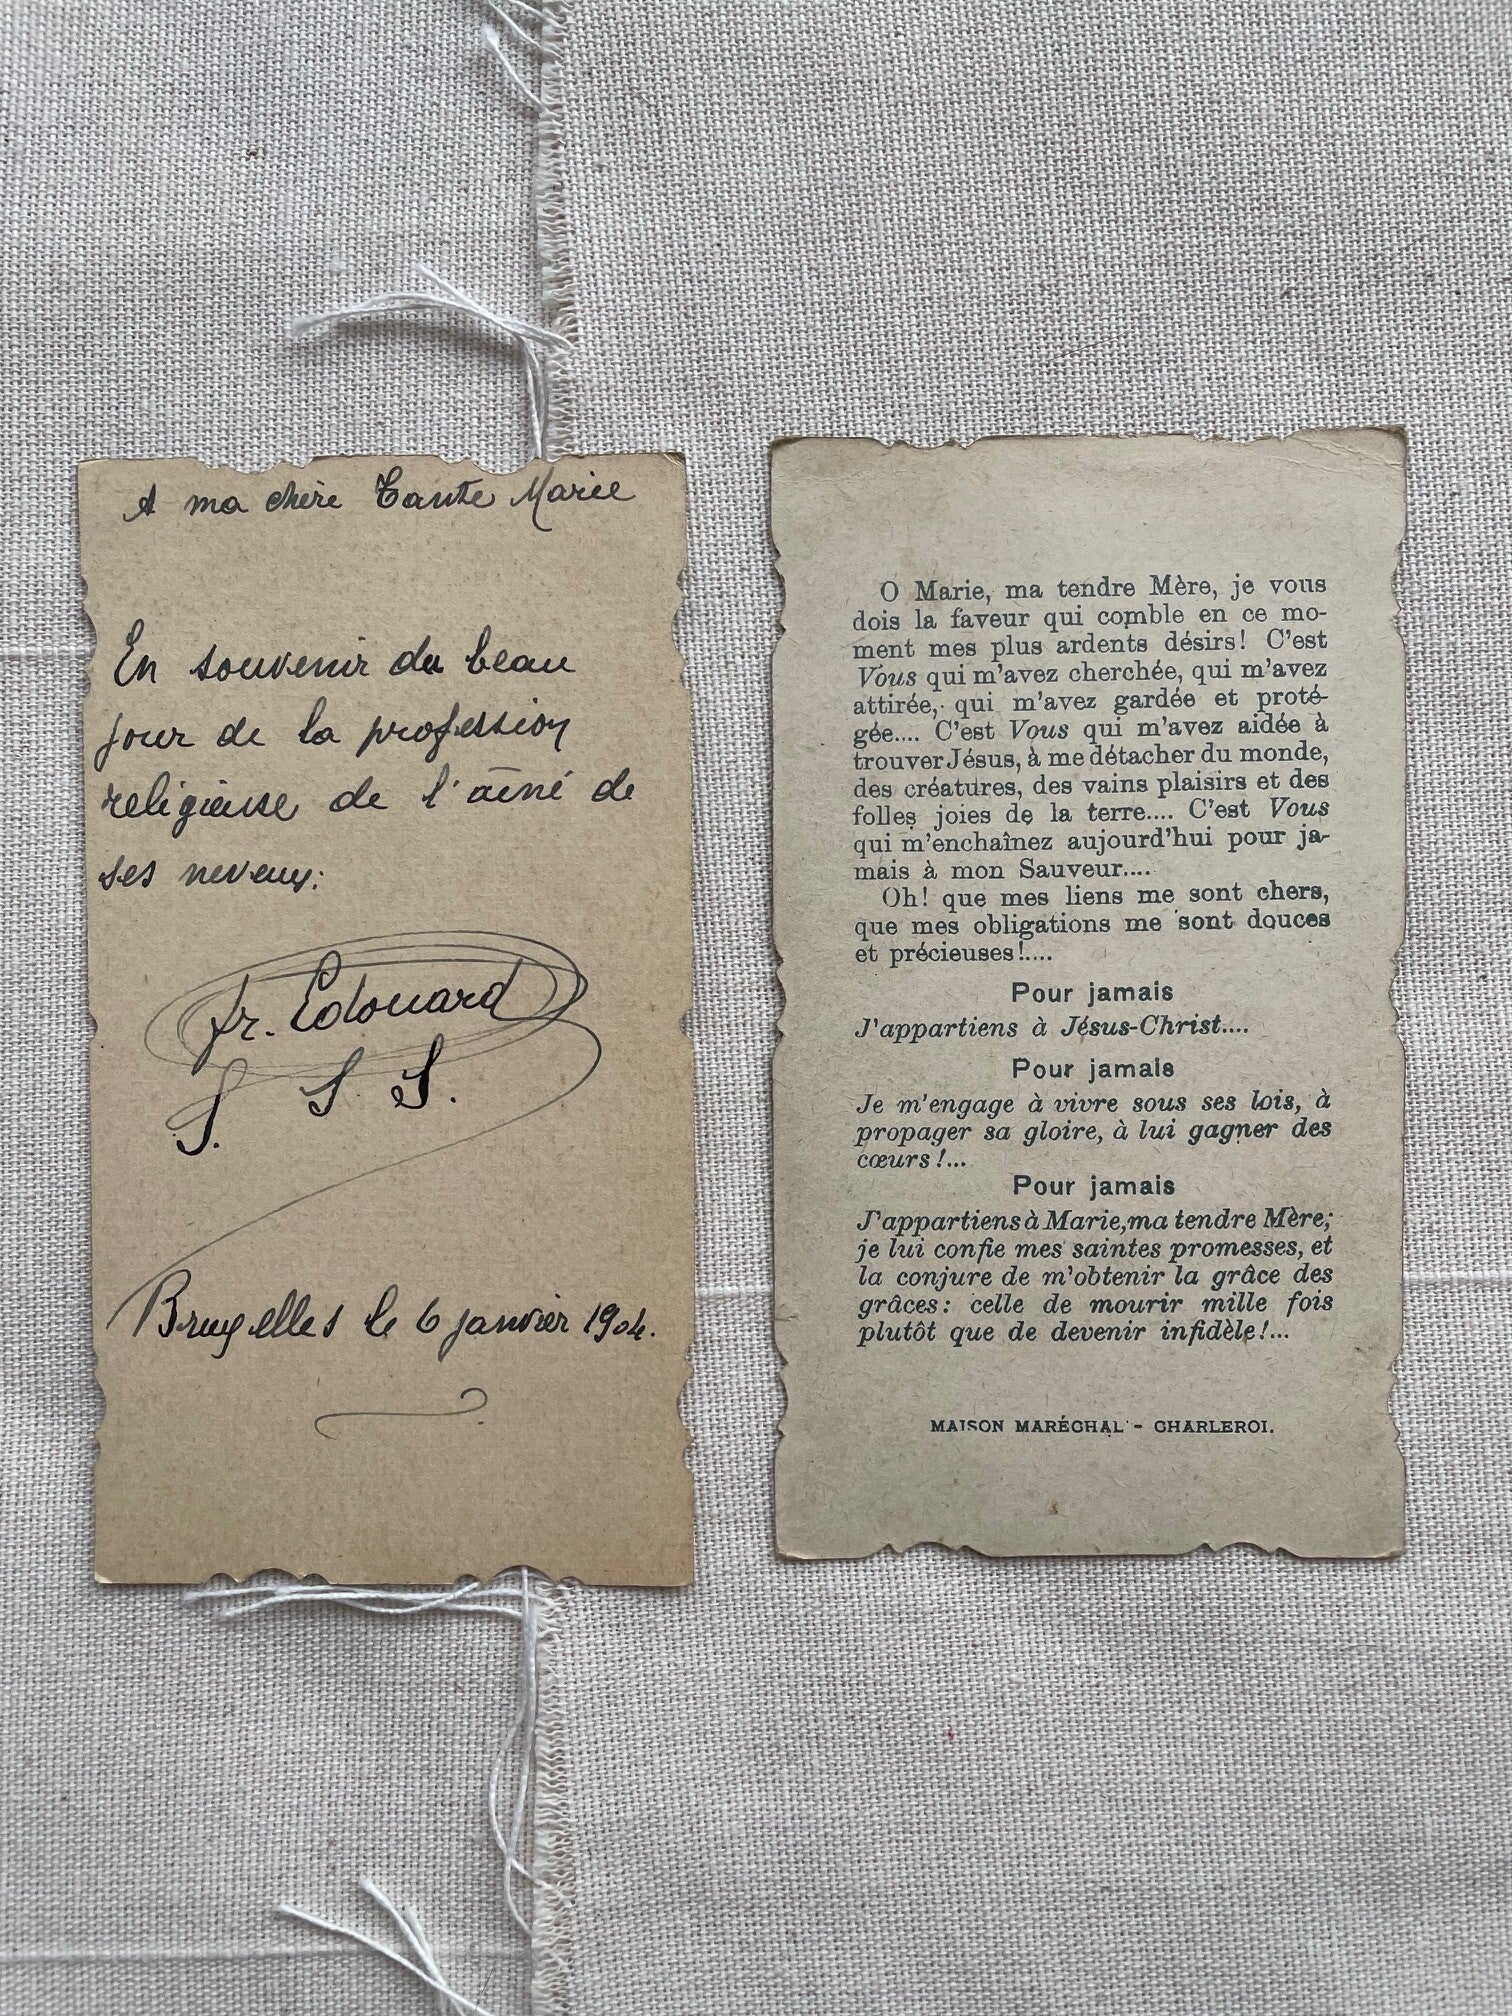 A ma chère Tante Marie
En souvenir du beau
jour de la profession
religieuse de l'aîné de
ses neveux:
fr. Edouard
S. S S.
Bruxelles le 6 janvier 1904.
O Marie, ma tendre Mère, je vous
dois la faveur qui comble en ce mo-
ment mes plus ardents désirs! C'est
Vous qui m'avez cherchée, qui m'avez
attirée, qui m'avez gardée et proté-
gée.... C'est Vous qui m'avez aidée à
trouver Jésus, à me détacher du monde,
des créatures, des vains plaisirs et des
folles joies de la terre.... C'est Vous
qui m'enchaînez aujourd'hui pour ja-
mais à mon Sauveur....
Oh! que mes liens me sont chers,
que mes obligations me sont douces
et précieuses!....
Pour jamais
J'appartiens à Jésus-Christ....
Pour jamais
Je m'engage à vivre sous ses lois, à
propager sa gloire, à lui gagner des
cœurs!...
Pour jamais
J'appartiens à Marie, ma tendre Mère;
je lui confie mes saintes promesses, et
la conjure de m'obtenir la grâce des
grâces: celle de mourir mille fois
plutôt que de devenir infidèle!...
MAISON MARÉCHAL - CHARLEROI.